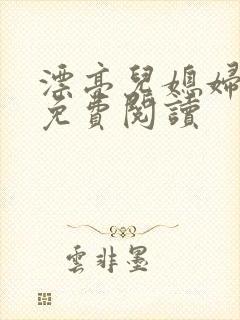 漂亮兒媳婦
免費閱讀
雲非墨